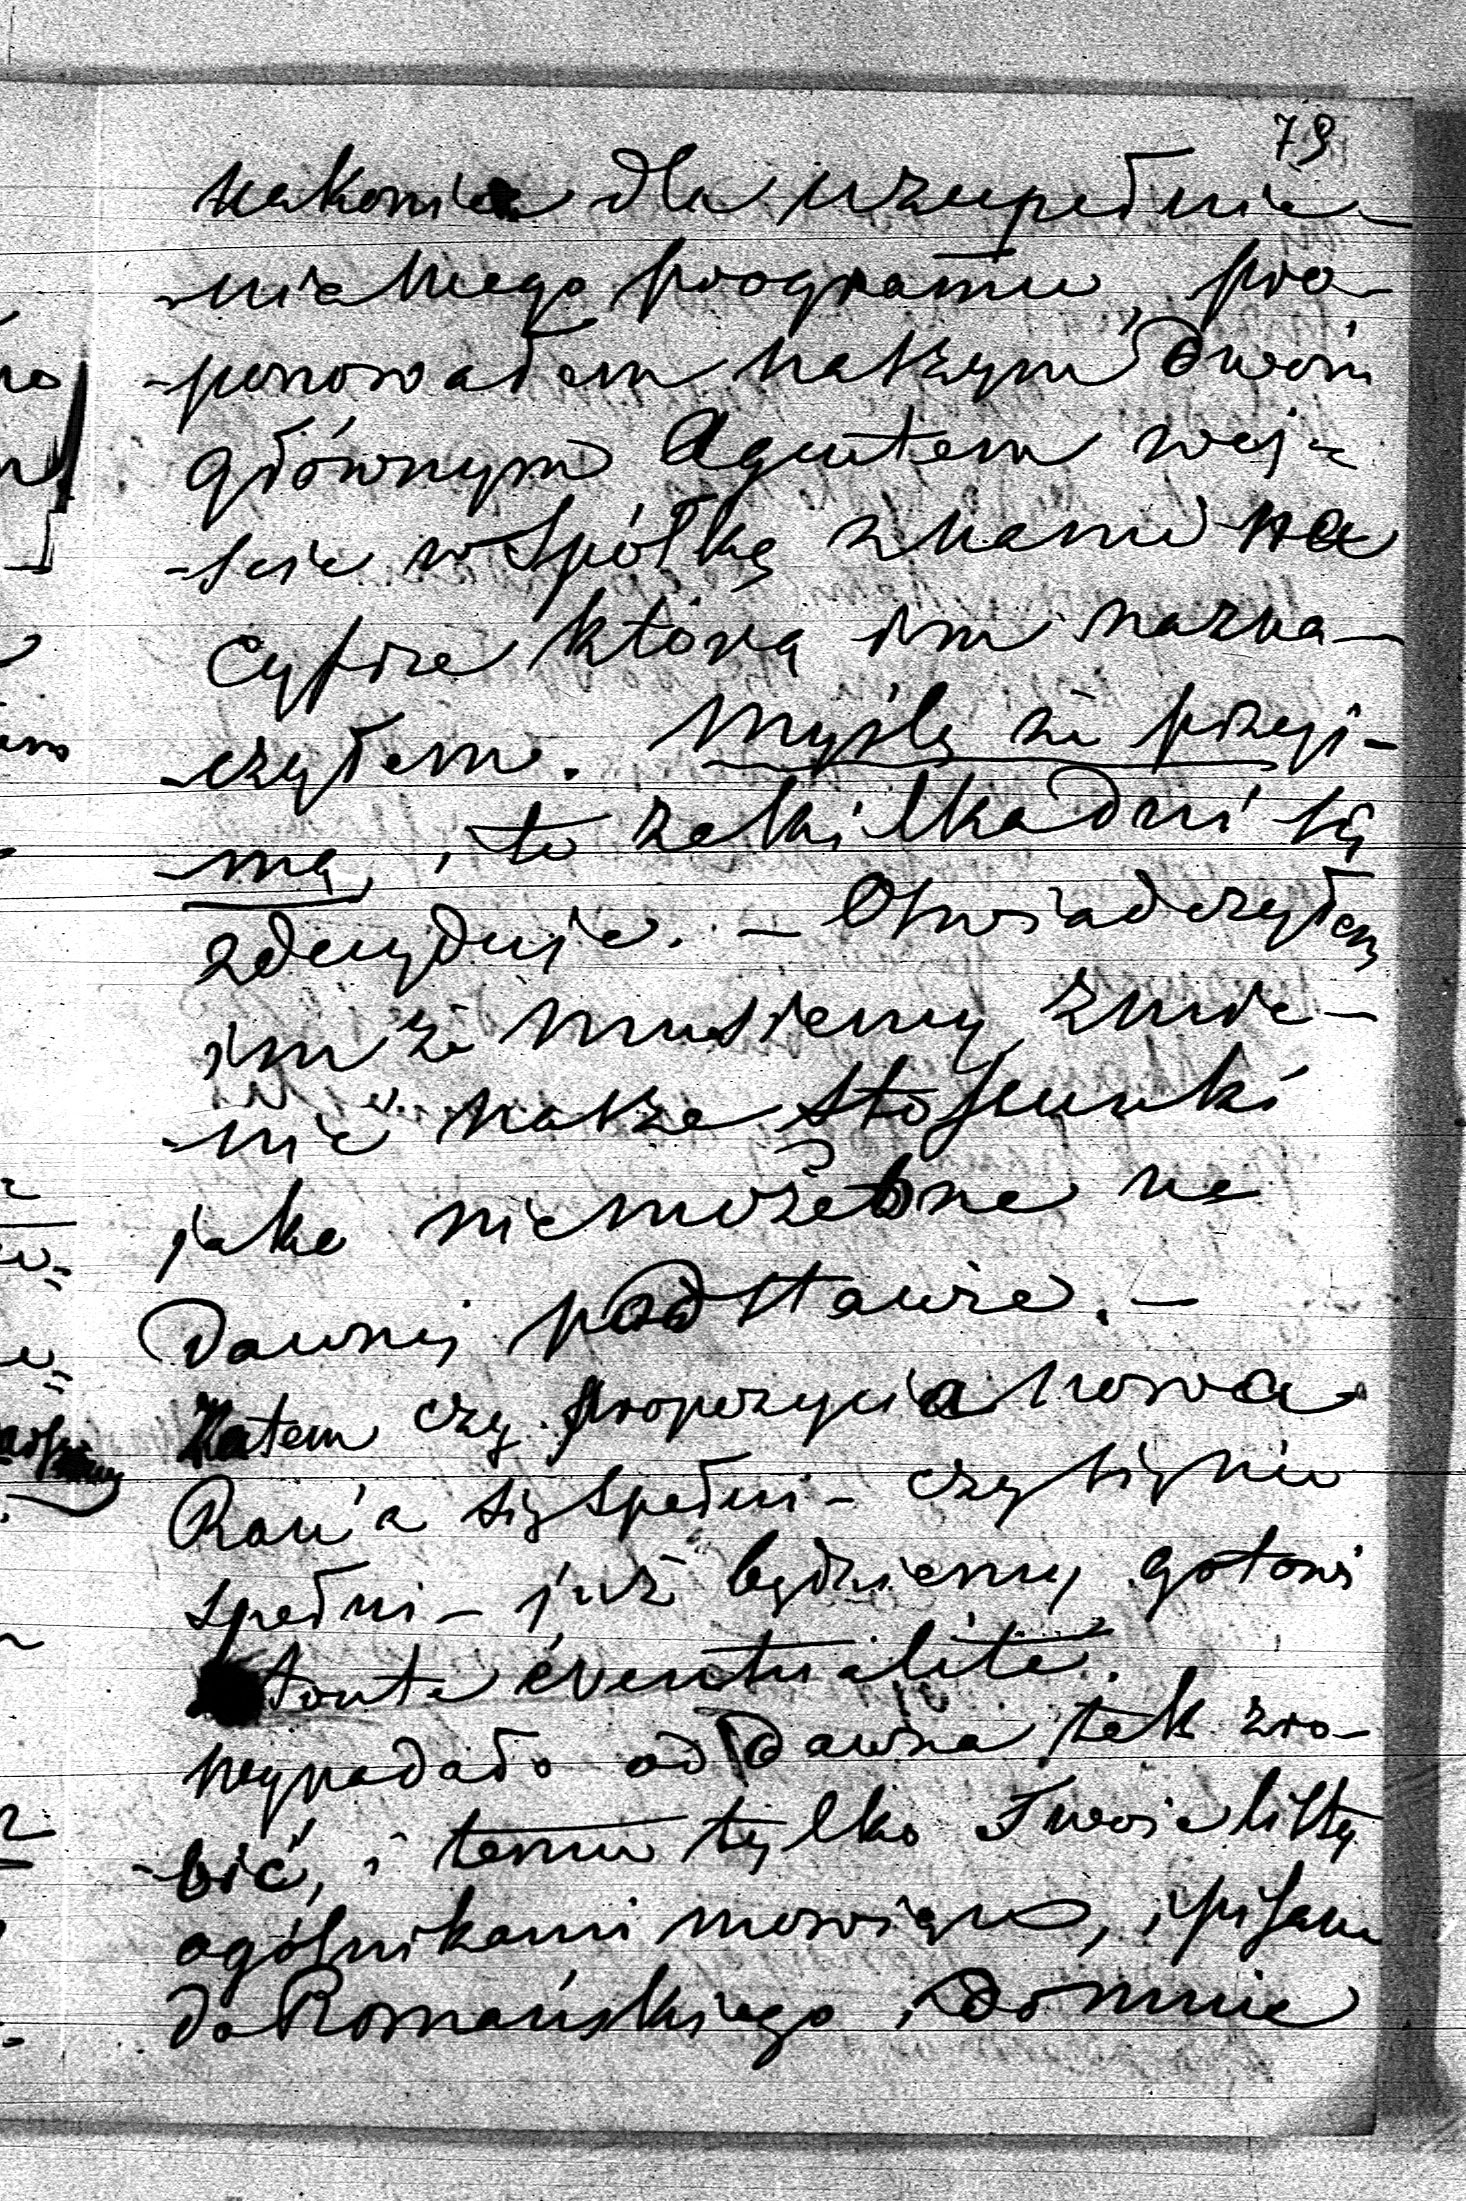 79
nakoniec dla uzupełnie-
-nia mego programu, pro-
-ponowałem naszym dwom
głównym Agentem wej-
-ście w Spółkę z nami na
cyfrze którą im nazna-
-czyłem. Myślę że przyj-
-mą, to za kilka dni się
zdecyduje. - Oświadczyłem
im że musiemy zmie-
-nić nasze stosunki
jako niemożebne na
dawnej podstawie. -
Zatem czy propozycia nowa
się spełni - czy się nie
spełni - już będziemy gotowi
toute éventualité.
Wypadało od dawna tak zro-
-bić, i temu tylko Twoje listy
ogólnikami mowiąc, i pisane
do Romańskiego i do mnie